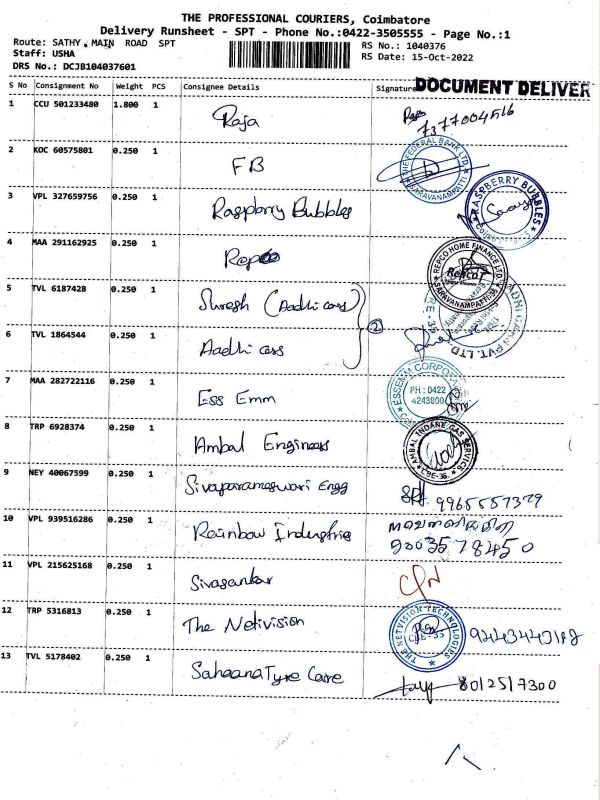 THE PROFESSIONAL COURIERS, Coimbatore
Delivery Runsheet - SPT - Phone No.:0422-3505555 - Page No.:1
Route: SATHY MAIN ROAD SPT
RS No.: 1040376
Staff: USHA
RS Date: 15-Oct-2022
DRS No.: DCJB104037601
S No Consignment No Weight PCS Consignee Details Signature DOCUMENT DELIVER
1 CCU 501233480 1.800 1 Raja 7377004516
2 KOC 60575801 0.250 1 FB THE FEDERAL BANK LTD. SARAVANAMPATTI
3 VPL 327659756 0.250 1 Raspbrry Bubbles RASPBERRY BUBBLES
4 MAA 291162925 0.250 1 Repco REPCO HOME FINANCE LTD. Repco SARAVANAMPATTI
5 TVL 6187428 0.250 1 Suresh (Aadhi cars)
2
PVT. LTD.
6 TVL 1864544 0.250 1 Aadhi cars
7 MAA 282722116 0.250 1 Ess Emm ESSEMM CORPORA PH : 0422 4243800
8 TRP 6928374 0.250 1 Ambal Engineers AMBAL INDANE GAS SERVICE CBE-35
9 NEY 40067599 0.250 1 Sivaparameswari Engg
10 VPL 939516286 0.250 1 Rainbow Industries 9003578450
11 VPL 215625168 0.250 1 Sivasankar
12 TRP 5316813 0.250 1 The Netivision THE NETVISION TECHNOLOGIES CBE-35
13 TVL 5178402 0.250 1 Sahaana Tyre Care 8012517300